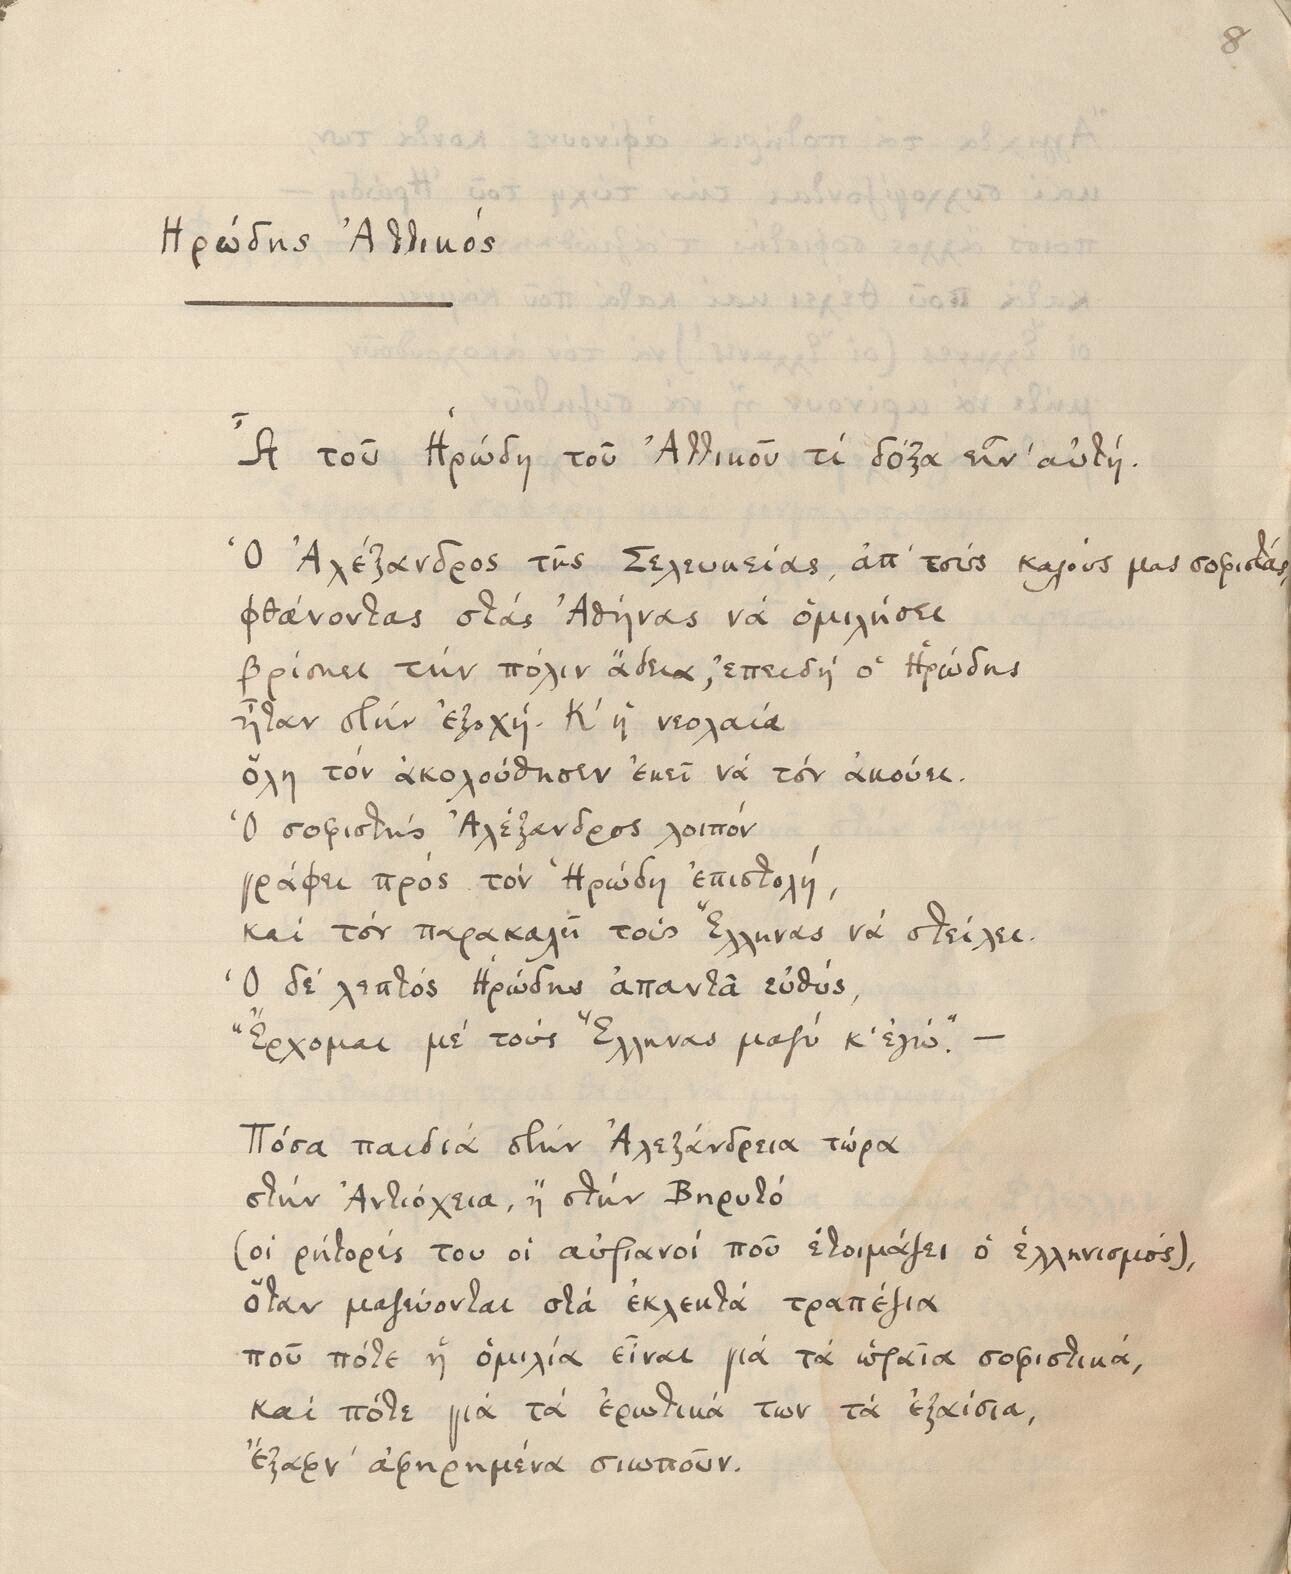 8
Ηρώδης Ἀττικός
Ἆ τοῦ Ἡρώδη τοῦ Ἀττικοῦ τί δόξα εἶν' αὐτή.
Ὁ Ἀλέξανδρος τῆς Σελευκείας, ἀπ' τούς καλούς μας σοφιστάς,
φθάνοντας στάς Ἀθήνας νά ὁμιλήσει
βρίσκει τήν πόλιν ἄδεια, ἐπειδή ὁ Ἡρώδης
ἦταν στήν ἐξοχή. Κ' ἡ νεολαία
ὅλη τόν ἀκολούθησεν ἐκεῖ νά τόν ἀκούει.
Ὁ σοφιστής Ἀλέξανδρος λοιπόν
γράφει πρός τόν Ἡρώδη ἐπιστολή,
καί τόν παρακαλῆ τούς Ἕλληνας νά στείλει.
Ὁ δέ λεπτός Ἡρώδης ἀπαντᾶ εὐθύς,
"Ἔρχομαι μέ τούς Ἕλληνας μαζύ κ' ἐγώ." —
Πόσα παιδιά στήν Ἀλεξάνδρεια τώρα
στήν Ἀντιόχεια, ἤ στήν Βηρυτό
(οἱ ρήτορές του οἱ αὐριανοί ποῦ ἑτοιμάζει ὁ ἑλληνισμός),
ὅταν μαζεύονται στά ἐκλεκτά τραπέζια
ποῦ πότε ἡ ὁμιλία εἶναι γιά τά ὡραῖα σοφιστικά,
καί πότε γιά τά ἐρωτικά των τά ἐξαίσια,
ἔξαφν' ἀφηρημένα σιωποῦν.